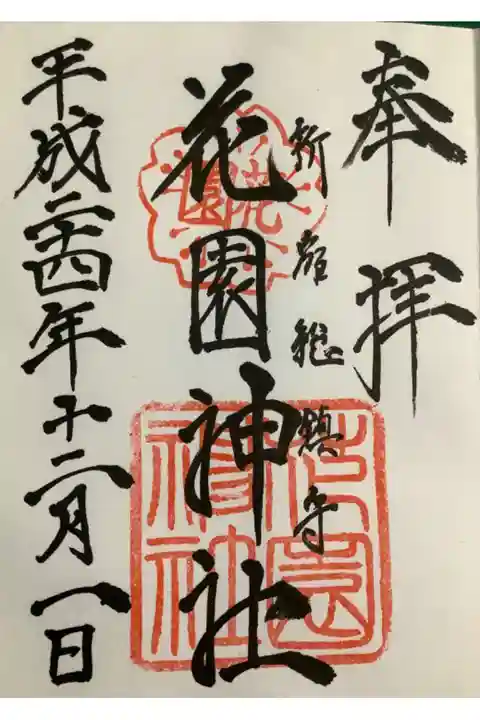 奉拝
新宿総鎮守
花園神社
平成二十四年十二月一日
花園
花園神社